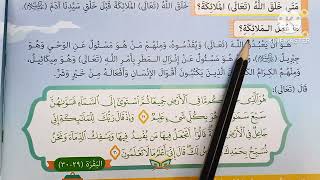 مَتَى خَلَقَ اللَّهُ (تَعَالَى) المَلَائِكَةَ؟
خَلَقَ اللَّهُ (تَعَالَى) المَلَائِكَةَ قَبْلَ خَلْقِ سَيِّدِنَا آدَمَ
مَا عَمَلُ المَلَائِكَةِ؟
هُوَ أَنْ يَعْبُدُوا اللَّهَ (تَعَالَى) وَيُقَدِّسُوهُ، وَمِنْهُمْ مَنْ هُوَ مَسْئُولٌ عَنِ الْوَحْيِ وَهُوَ
جِبْرِيلُ (ﷺ)، وَمِنْهُمْ مَنْ هُوَ مَسْئُولٌ عَنْ إِنْزَالِ المَطَرِ بِأَمْرِ رَبِّهِ وَهُوَ مِيكَائِيلُ،
وَمِنْهُمُ الكِرَامُ الَّذِينَ يَكْتُبُونَ أَقْوَالَ الإِنْسَانِ وَأَفْعَالَهُ مِنْ خَيْرٍ وَشَرٍّ.
قَالَ (تَعَالَى):
هُوَ الَّذِي خَلَقَ لَكُم مَّا فِي الْأَرْضِ جَمِيعًا ثُمَّ اسْتَوَىٰ إِلَى السَّمَاءِ فَسَوَّاهُنَّ
سَبْعَ سَمَاوَاتٍ وَهُوَ بِكُلِّ شَيْءٍ عَلِيمٌ ٢٩ وَإِذْ قَالَ رَبُّكَ لِلْمَلَائِكَةِ إِنِّي
جَاعِلٌ فِي الْأَرْضِ خَلِيفَةً قَالُوا أَتَجْعَلُ فِيهَا مَن يُفْسِدُ فِيهَا وَيَسْفِكُ الدِّمَاءَ وَنَحْنُ
نُسَبِّحُ بِحَمْدِكَ وَنُقَدِّسُ لَكَ قَالَ إِنِّي أَعْلَمُ مَا لَا تَعْلَمُونَ ٣٠
(البَقَرَة ٢٩-٣٠)